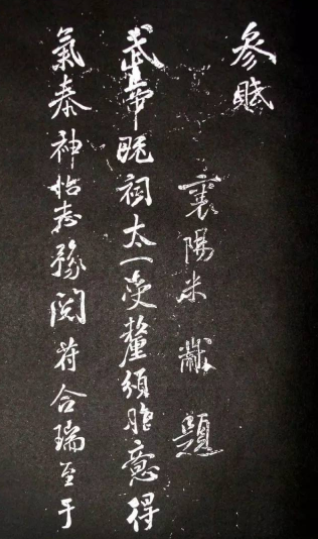 参賦
襄陽米黻題
武帝既祠太一受釐須膽意得
氣泰神怡志豫閱符合瑞至于